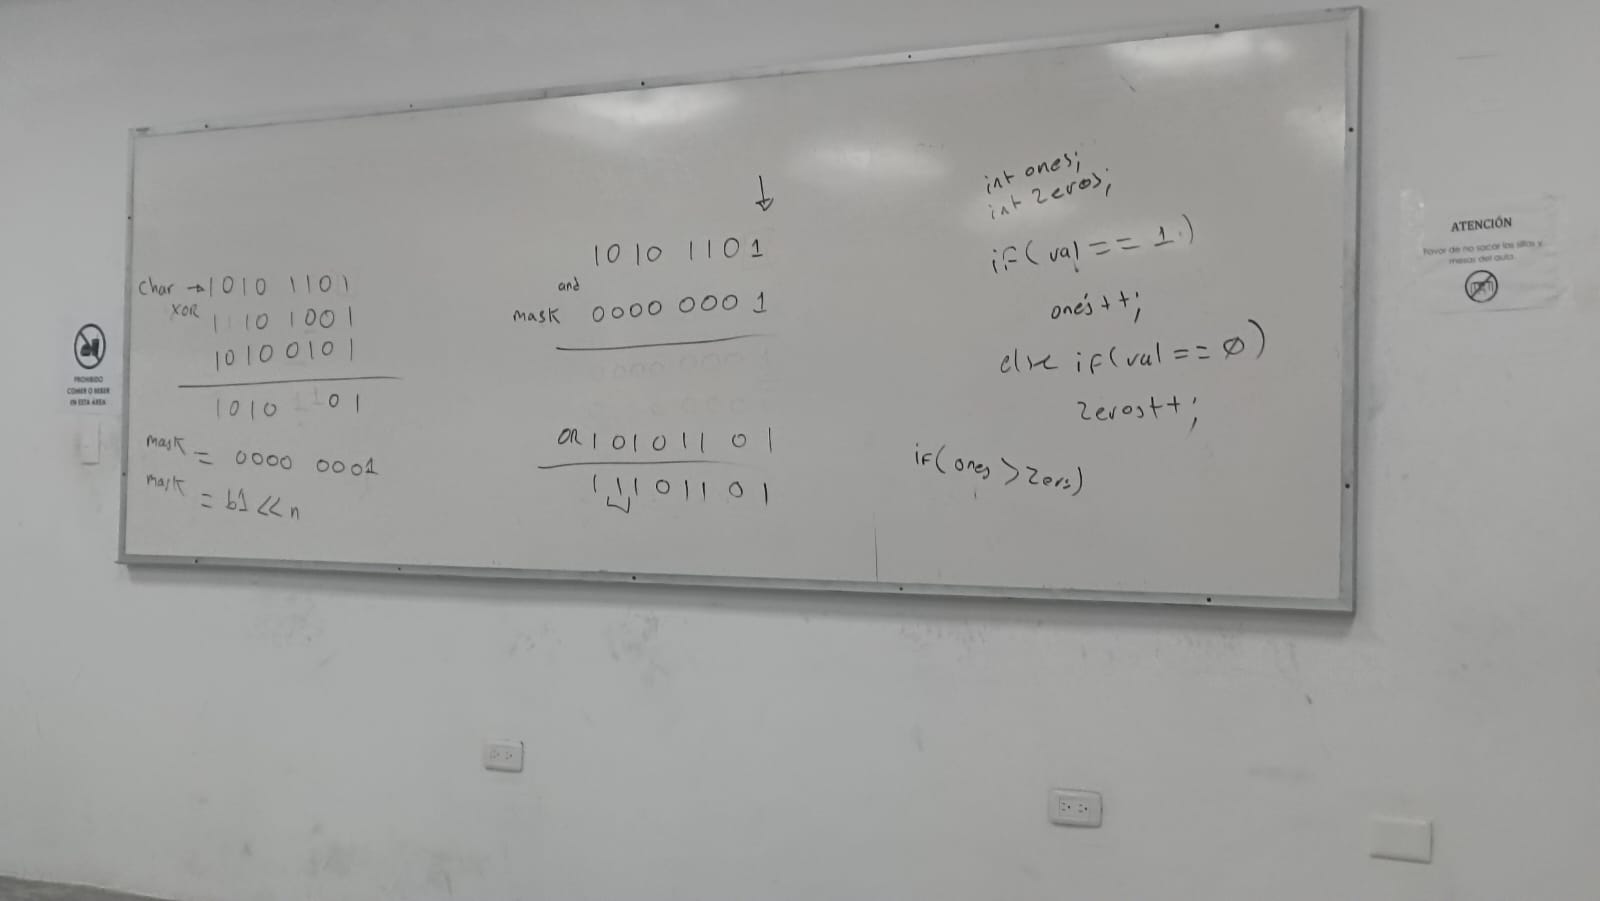 PROHIBIDO
COMER O BEBER
EN ESTA ÁREA
char → 1010 1101
XOR 1110 1001
1010 0101
1010 1101
mask = 0000 0001
mask = b1 << n
1010 1101
and
mask 0000 0001
OR 1010 1101
1110 1101
int ones;
int zeros;
if(val == 1)
one's++;
else if(val == 0)
zeros++;
if(ones > zeros)
ATENCIÓN
Favor de no sacar las sillas y
mesas del aula